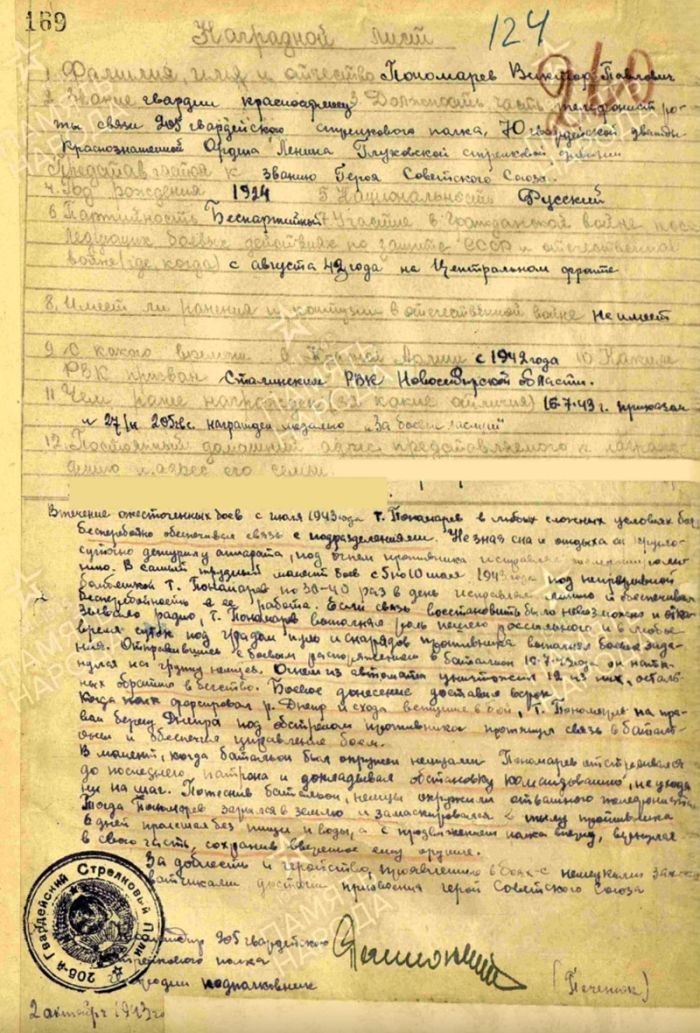 169
124
210
Наградной лист
1. Фамилия, имя и отчество Пономарев Виктор Павлович
2. Звание гвардии красноармеец 3. Должность, часть телефонист ро-
ты связи 205 гвардейского стрелкового полка, 70 гвардейской дважды
Краснознаменной Ордена Ленина Глуховской стрелковой дивизии
Представляется к званию Героя Советского Союза.
4. Год рождения 1924 5. Национальность Русский
6. Партийность Беспартийный Участие в Гражданской войне, пос-
ледующих боевых действиях по защите СССР и отечественной
войне (где, когда) с августа 42 года на Центральном фронте
8. Имеет ли ранения и контузии в отечественной войне не имеет
9. С какого времени в Красной Армии с 1942 года 10 Каким
РВК призван Сталинским РВК Новосибирской области.
11. Чем ранее награжден (за какие отличия) 16.7.43 г. приказом
27/н награжден медалью "За боевые заслуги"
12. Постоянный домашний адрес представляемого к награж-
дению и адрес его семьи
В течение ожесточенных боев с июля 1943 года т. Пономарев в любых сложных условиях боя
бесперебойно обеспечивал связь с подразделениями. Не зная сна и отдыха он кругло-
суточно дежурил у аппарата, под огнем противника исправлял
В самый трудный момент боев с 5 по 10 июля 1943 года под непрерывной
бомбежкой т. Пономарев по 30-40 раз в день исправлял линию и обеспечивал
бесперебойность её работы. Если связь восстановить было невозможно и отка-
зывало радио, т. Пономарев выполнял роль пешего рассыльного в любое
время суток под градом пуль и снарядов противника выполнял боевые зада-
ния. Отправившись с боевым распоряжением в батальон он натк-
нулся на группу немцев. Огнем из автомата уничтожил 12 из них, осталь-
ных обратил в бегство. Боевое донесение доставил в срок.
Когда полк форсировал р. Днепр и сходу вступил в бой, т. Пономарев на пра-
вый берег Днепра под обстрелом противника протянул связь в баталь-
оны и обеспечил управление боем.
В момент, когда батальон был окружен немцами Пономарев отстреливался
до последнего патрона и докладывал обстановку командованию, не уходя
ни на шаг. Потеснив батальон, немцы окружили отважного телефониста
Тогда Пономарев зарылся в землю и замаскировался в тылу противника
6 дней пролежал без пищи и воды, а с продвижением полка вперед, вернулся
в свою часть, сохранив вверенное ему оружие.
За доблесть и геройство, проявленные в боях с немецкими зах-
ватчиками достоин присвоения герой Советского Союза
Командир 205 гвардейского
стрелкового полка
гвардии подполковник
(Печенюк)
2 октября 1943 го
Гвардейский Стрелковый Полк
ПАМЯТЬ НАРОДА